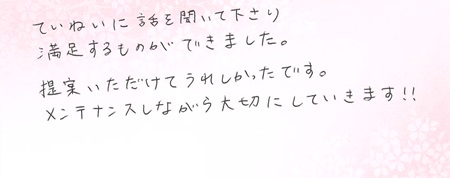 ていねいに話を聞いて下さり
満足するものができました。
提案いただけてうれしかったです。
メンテナンスしながら大切にしていきます!!